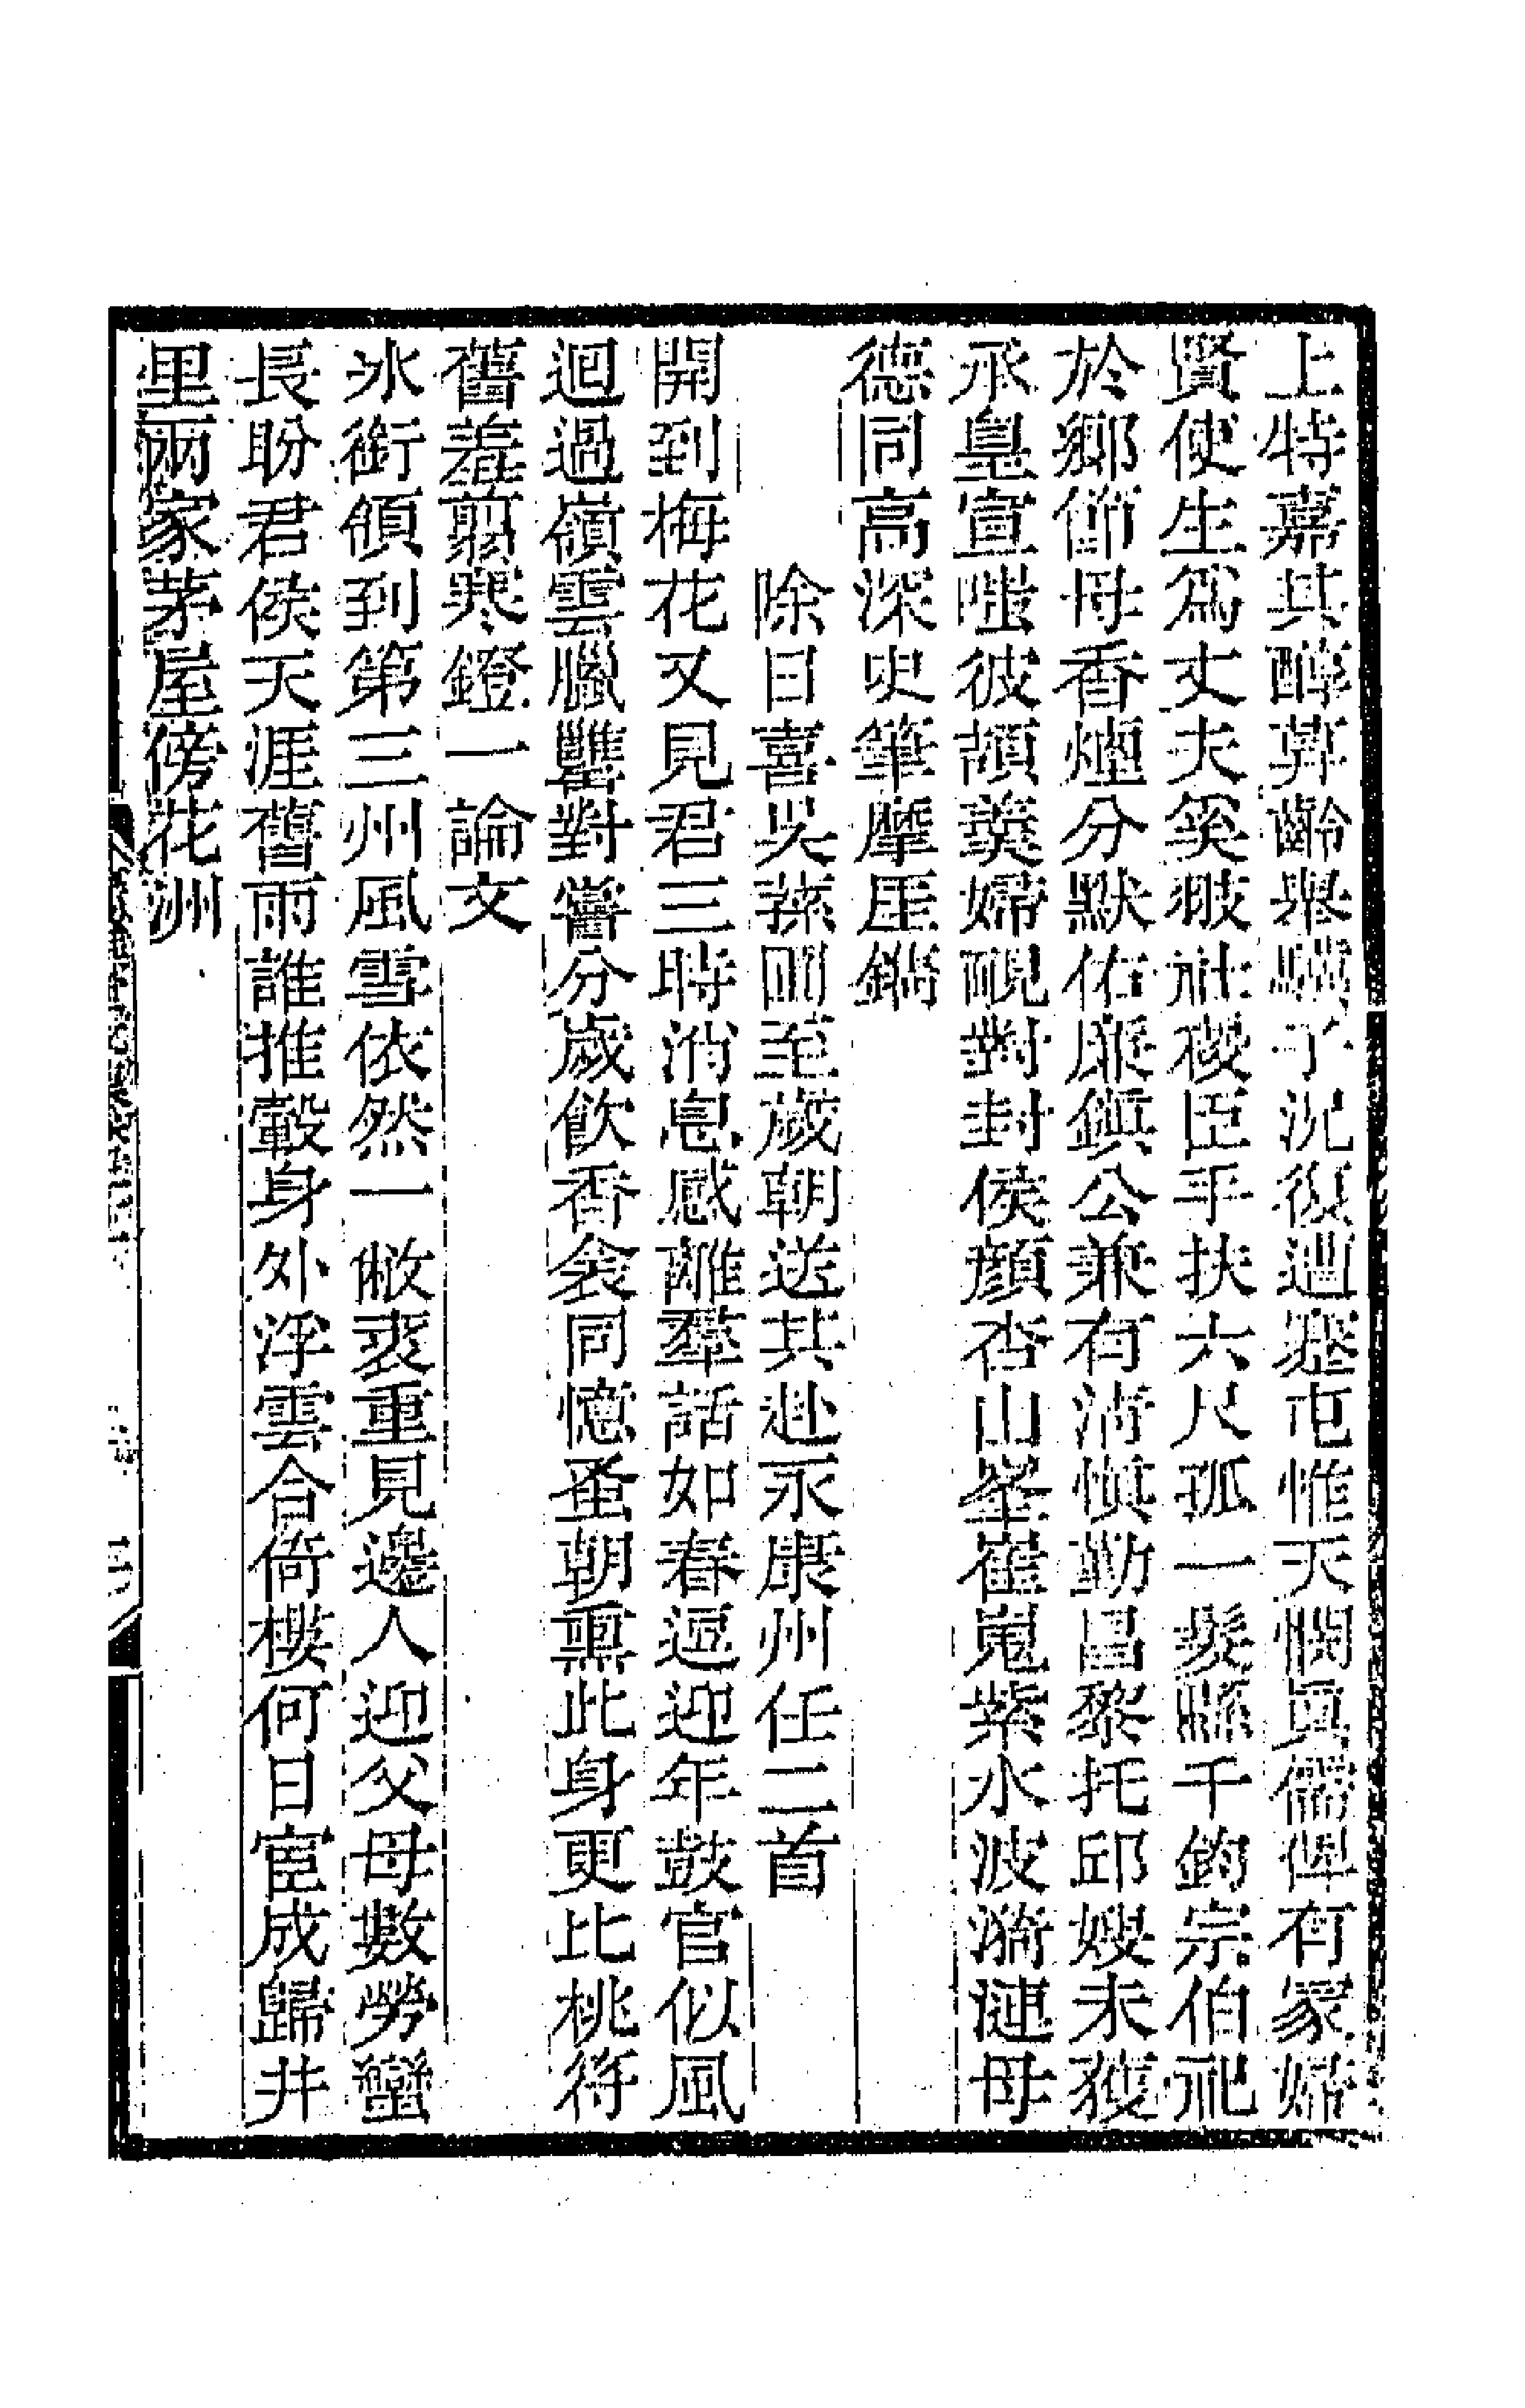 上特嘉其醇葬齡舉驥子沉復迍蹇屯惟天憫眞儒俾有家婦
賢使生爲丈夫奚啻社稷臣手扶六尺孤一髮縣千鈞宗伯祀
於鄉節母香煙分默佑康鎮公兼有清慎勤昌黎托邱嫂未獲
承皇宣嗤彼頡羹婦靦對封侯顏杏山峯崔嵬紫水波漪漣母
德同高深史筆摩厓鐫
除日喜吳蓀圃至歲朝送其赴永康州任二首
開到梅花又見君三時消息感離羣話如春逗迎年鼓官似風
迴過嶺雲臘釁對嘗分歲飲香衾同憶蚤朝熏此身更比桃符
舊羞翦寒鐙一論文
冰銜領到第三州風雪依然一敝裘重見邊人迎父母數勞蠻
長盼君侯天涯舊雨誰推轂身外浮雲合倚樓何日宦成歸井
里兩家茅屋傍花洲